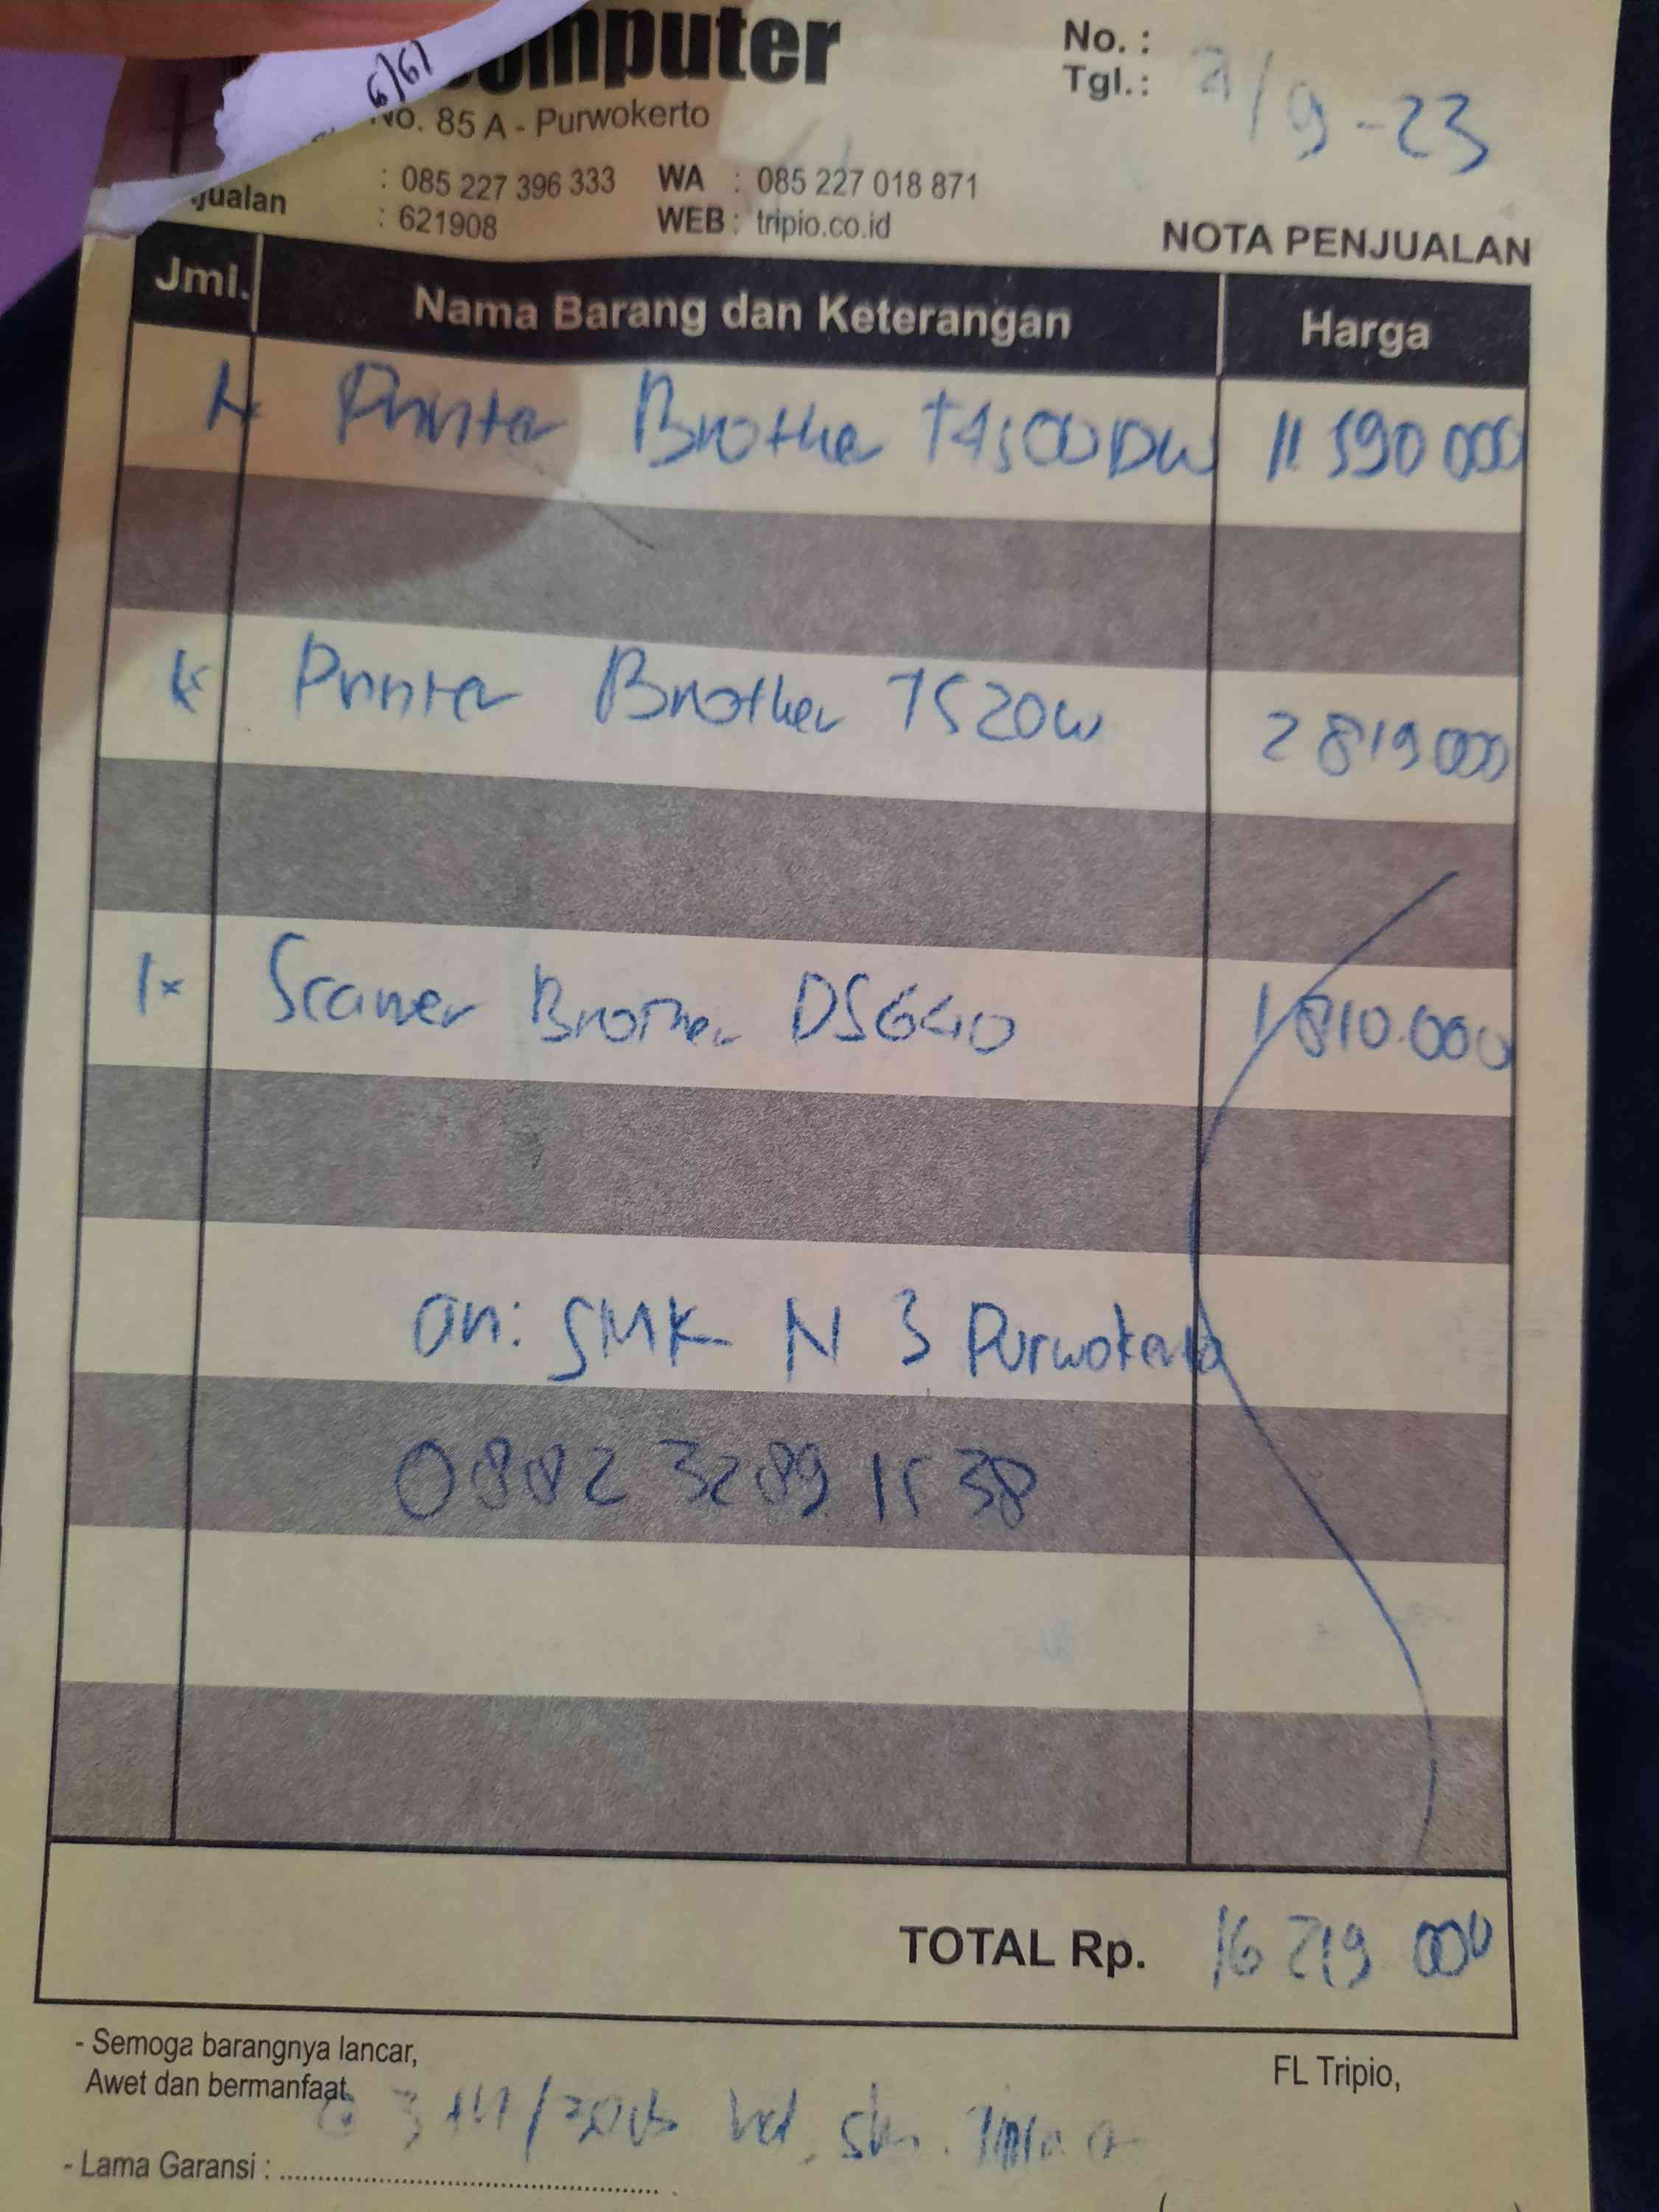 omputer
No. 85 A - Purwokerto
No. :
Tgl.: 7/9-23
6/61
: 085 227 396 333 WA : 085 227 018 871
jualan : 621908 WEB : tripio.co.id
NOTA PENJUALAN
Jml. Nama Barang dan Keterangan Harga
1x Printer Brother T4500DW 11 590 000
1x Printer Brother T520W 2 819 000
1x Scaner Brother DS640 1 810.000
an: SMK N 3 Purwokerto
0882 3289 1538
TOTAL Rp. 16 219 000
- Semoga barangnya lancar,
Awet dan bermanfaat
FL Tripio,
3 th/
- Lama Garansi :